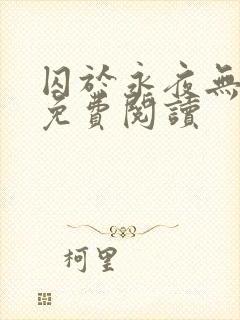 囚於永夜無
免費閱讀
柯里